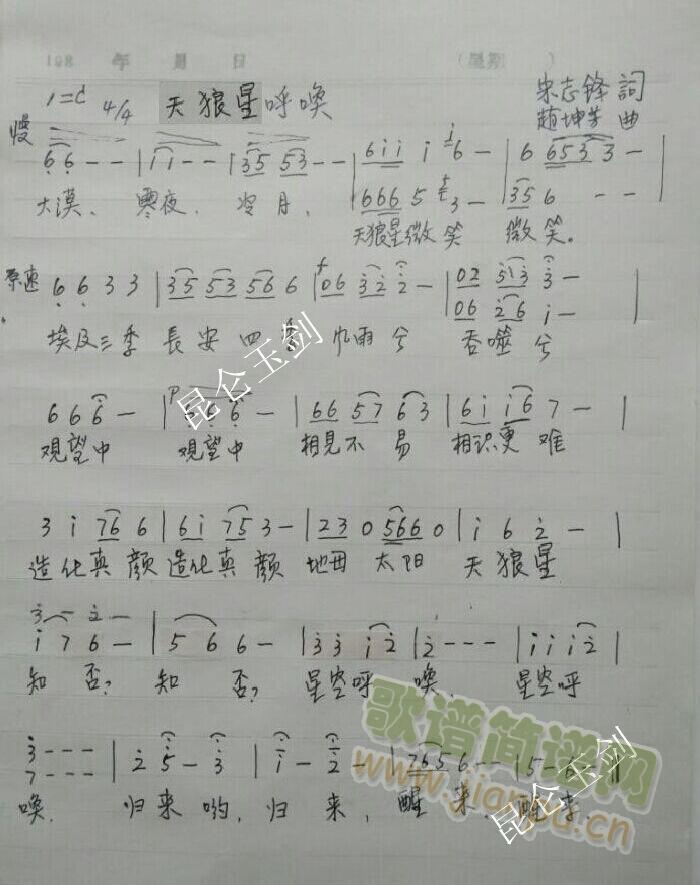 198 年 月 日 (星期 )
1=C 4/4 天狼星呼唤 宋志锋 詞
趙坤芳 曲
慢
6 6 - - | i i - - | 35 53 - - | 6ii i 6 - | 6 6533 -
666 5 3 - | 356 - -
大漠、寒夜、冷月、天狼星微笑 微笑。
原速 6 6 3 3 | 35 53 56 6 | f 06 32 2 - | 02 313 3 - |
06 26 i -
埃及三季 長安四季 雨兮 吞噬兮
6 6 6 - | P 6 6 6 - | 66 57 63 | 6i i6 7 - |
观望中 观望中 相見不易 相识更难
3 i 76 6 | 6i 75 3 - | 23 0 566 0 | i 6 2 - |
造化真颜 造化真颜 地母 太阳 天狼星
3 - 2 -
i 7 6 - | 5 6 6 - | 3 3 i 2 | 2 - - - | i i i 2 |
知否? 知否? 星空呼唤. 星空呼
3 - - -
7 - - - | 2 5 - 3 | i - 2 - | 7656 - - | 5 - 6 - ‖
唤. 归来哟,归来,醒来.醒来.
昆仑玉剑
昆仑玉剑
歌谱简谱网
www.jianpu.cn